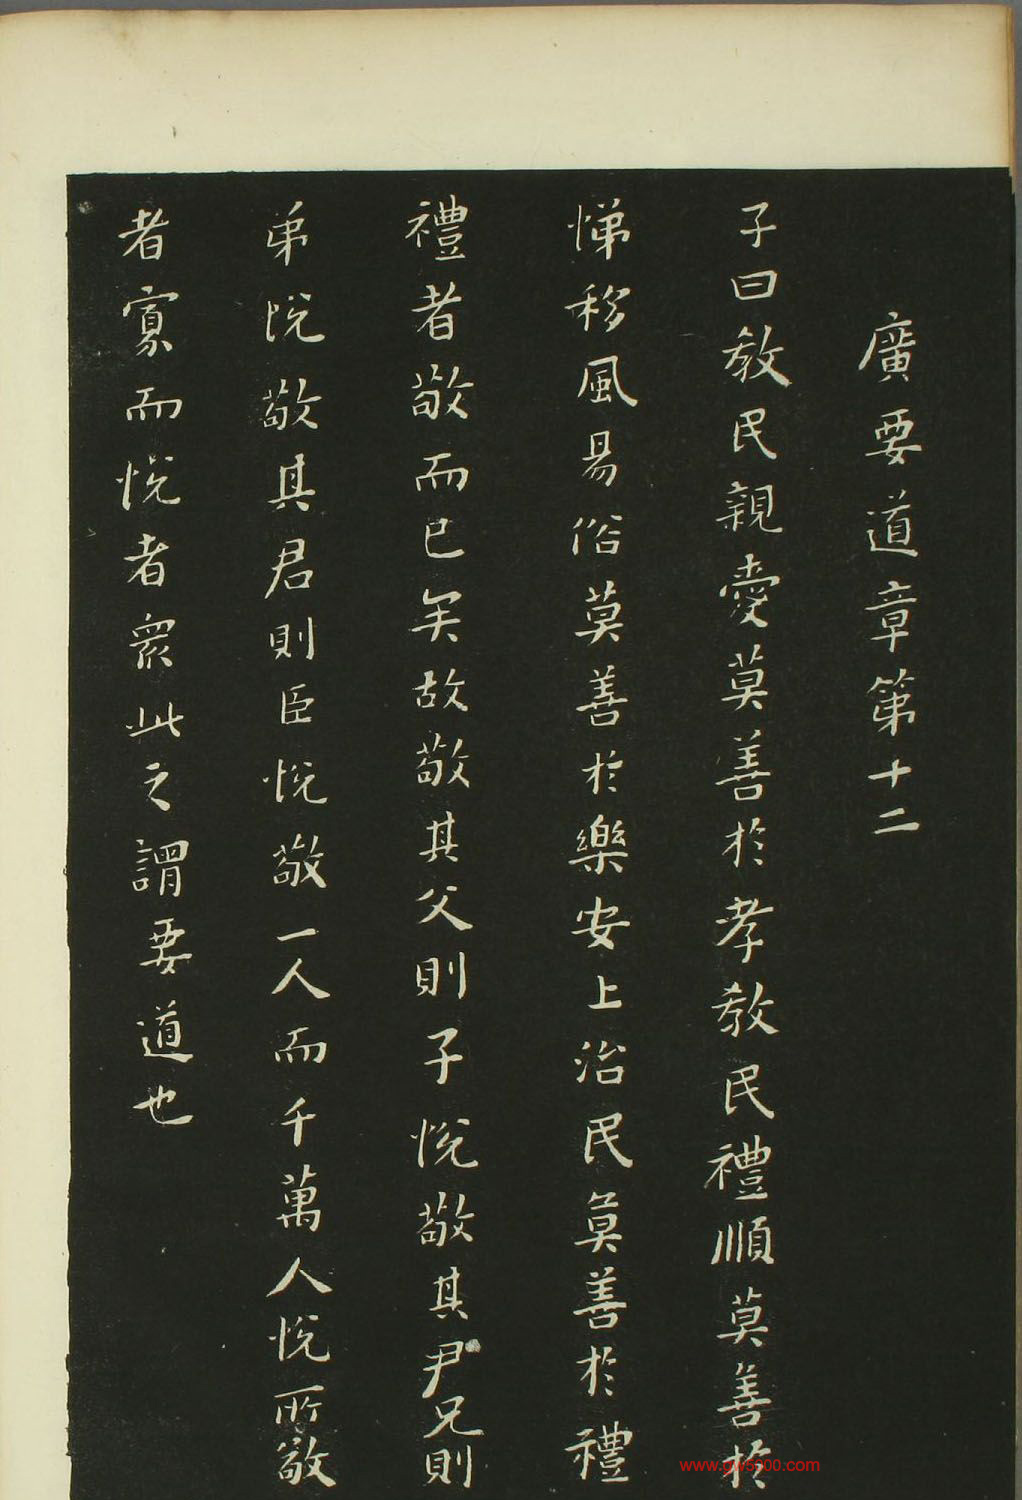 廣要道章第十二
子曰教民親愛莫善於孝教民禮順莫善於
悌移風易俗莫善於樂安上治民莫善於禮
禮者敬而已矣故敬其父則子悅敬其尹兄則
弟悅敬其君則臣悅敬一人而千萬人悅所敬
者寡而悅者衆此之謂要道也
www.gw5500.com